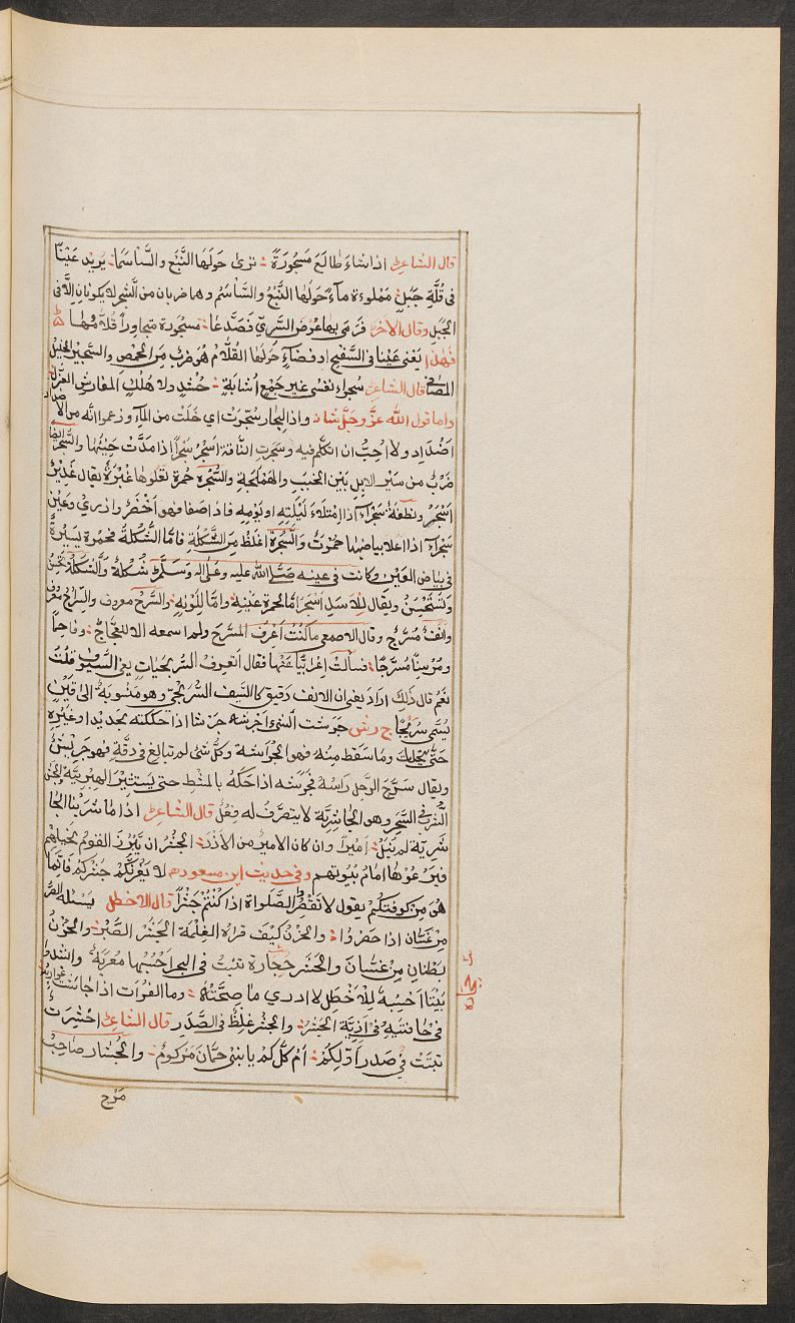 قال الشاعر اذا شاءَ طالَعَ مَسْجُورَةً ؞ ترى حَولَهَا النَّبْعَ والسَّاسَمَا ؞ يريد عَيْنًا
فى قُلَّةِ جَبَلٍ مَمْلوءة ماءً حَولَها النَّبْعُ والسَّاسَمُ وهما ضربان من الشجر لا يكونان إلّا فى
الجبل وقال الاخر فَرَمَى بها عُرْضَ السَّرِيّ فَصَدَّعا ؞ مسجُورة متجاوراً قُلّامُها
فهذا يَعْنى عَيْنا فى السَّفْحِ او فضاءٍ حَولَها القُلّامُ هُوَ ضربٌ مِنَ الحَمضِ والسَّجيرُ الخليلُ
المصافى قال الشاعر سُجَراءَ نفسى غيرَ جَمْعِ أُشابَةٍ ؞ حُشُدٍ ولا هُلُكِ المفارش العُزَّل
واما قول الله عزَّ وجَلَّ شانه واذا البحار سُجّرَت اي خلت من الماء وزعموا انّه من الأ
اضْدادِ ولا اُحِبُّ ان اتكلَّمَ فيه وسَجَرتِ النَّاقة اسْجُرُ سَجْراً إذا مَدَّت حَنِينُها والسَّجْرُ ايضا
ضَرْبٌ من سَيْرِ الابِل بَيْنَ الخَبَبِ والهَمْلَجَةِ والسُّجْرَة حُمْرة تعلُوها غُبْرَةٌ يقال غَدِيرٌ
اسْجَرُ ونُطفةٌ سَجْراءُ اذا امْتَلاءَ لَيْلَتِهِ او يَوْمِهِ فاذا صفا فهو أخْضَرُ وازرقُ وعَيْن
سَجْراءُ اذا اعلا بياضَها حُمْرَةٌ والسُّجْرَة اغلظُ مِنَ الشُّكْلَة فامّا الشُّكلةُ فحُمْرة يَسِيرَةٌ
فى بياض العَيْنِ وكانت فى عينِه صَلَّى الله عليه وعَلَى اله وَسَلَّمَ شُكلةٌ والشُّكلَةُ تُحْسَنُ
وتُسْتَحْسَنُ ويقال لِلأَسَد اسْجَرُ امّا لحمرة عَيْنِهِ وامّا لِلَوْنِهِ والسَّرْجُ معروف والسِّراجُ معروف
وانفٌ مُسَرَّج وقال الاصمعى ما كُنْتُ أعْرِف المسَرَّجَ ولم اسمعه الا للعَجَّاجِ ؞ وفاحِماً
ومَرْسِناً مُسَرَّجا ؞ فسألتُ إعْرابيًّا عَنْها فقال أتعرِفُ السُّرَيجَيّاتِ يعنى السّيوفَ قلت
نَعَمْ قال ذٰلِكَ ارادَ يعنى ان الانف دقيق كالسَّيف السُّرَيْجِىّ وهو مَنسُوبَة الى قَيْنٍ
يُسَمَّى سُرَيْجًا ج ر ش جَرَشت الشَّىءَ اجْرِشه جَرْشا اذا حَكَكتَه بحَديدٍ او غيرِه
حَتّى يَنْحَكّ وما سَقَط مِنهُ فهو الجُراشة وكلّ شى لم تبالغ فى دقّهِ فهو جَرِيش
ويقال سَرَّحَ الرَّجل رَاسَهُ فجَرَشَه اذا حَكّهُ بالمشط حتى يَستثيرَ الهِبْرِيَةَ والجَشْر
الشُّرْب فى السَّحَرِ وهو الجاشِرِيّة لا يتصَرَّفُ له فِعْلٌ قال الشاعر اذا ما شَرِبْنا الجا
شريّةَ لم نُبَلْ ؞ أميراً وان كان الاميرُ من الأزْدِ ؞ الجَشْرُ ان يَبْرُزَ القومُ بخيلِهِم
فيَرْعَوْها أمامَ بُيُوتِهِم وفى حديث ابن مسعود لا يغرّنَّكم جَشَرُكم فانّما
هُوَ مِن كوفتِكُم يقول لا تَقْصُرُوا الصَّلواة اذا كُنْتُم جَشَراً قال الاخطل يَسْئله الصُّبْ
مِنْ غسّان اذا حضروا ؞ والحَزْنُ كيْفَ قراهُ الغِلْمَةُ الجَشَرُ الصُّبْرُ والحَزْنُ
بطنانِ مِنْ غسّانَ والجَشَر حِجارة تنبُت فى البحر احسِبُها مُعَرَّبَةً وانشدوا
بَيْتًا احسِبهُ لِلأَخْطَلِ لا ادرى ما صِحَّتُهُ ؞ وما الفُرات اذا جاشَتْ غَوارِبُهُ
فى حافتَيْهِ وفى آذِيّهِ الجَشَرُ ؞ والجَشَرُ غِلَظٌ فى الصَّدْرِ قال الشاعر
تَبَيَّتْ فى صَدرِ اوّلِكُم ؞ أم كُلُّكم يا بنى حِمّانَ مَزْكومُ ؞ والجَشّار صاحِبُ
مَرْج